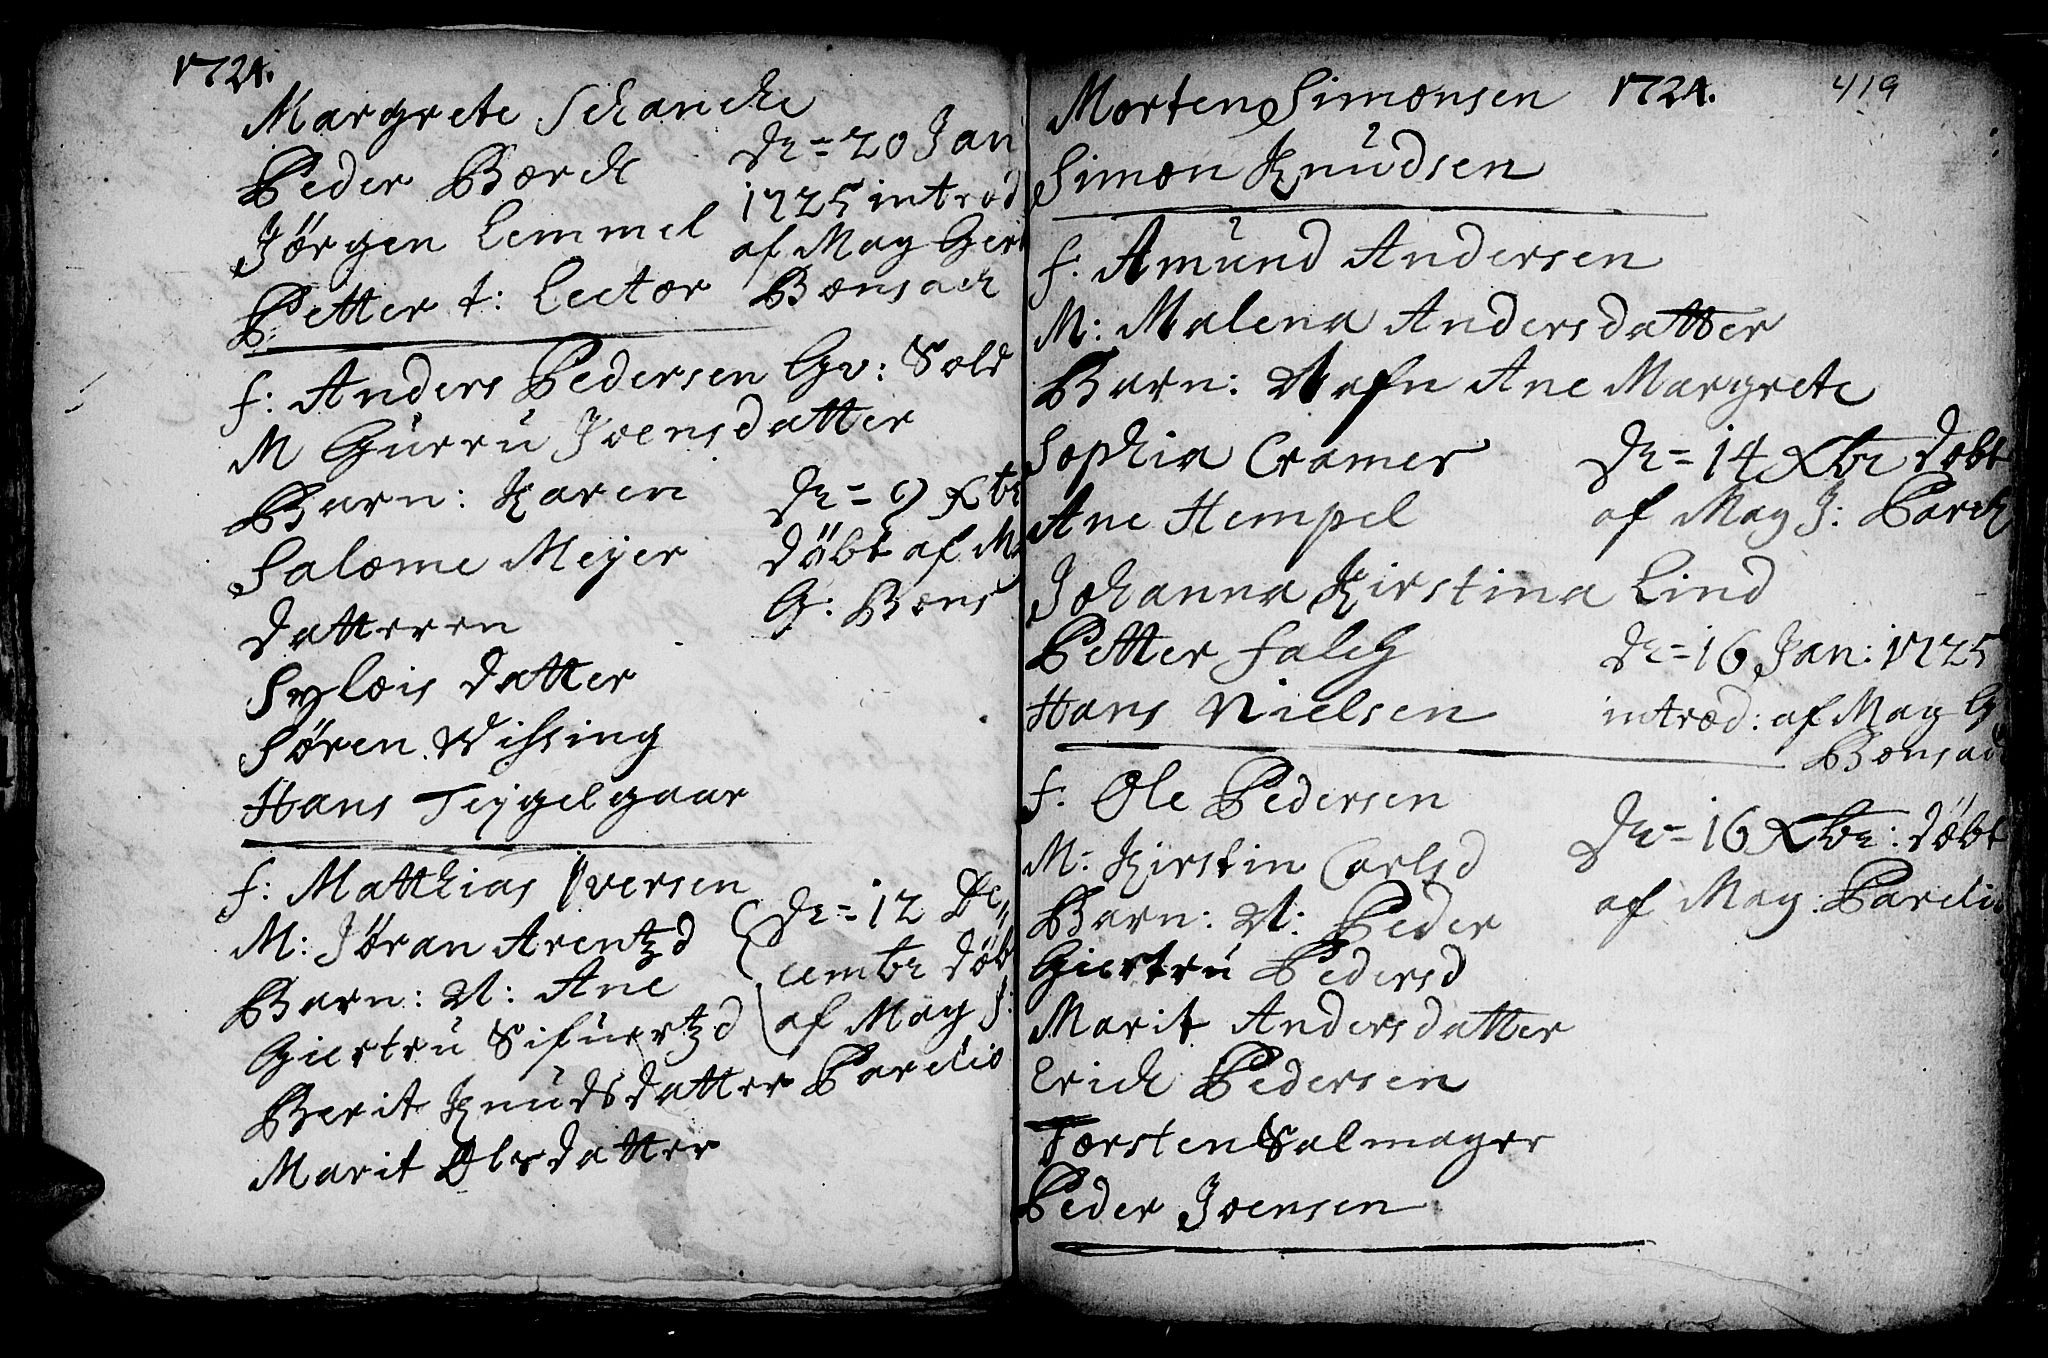 1724.
Margrete Schanche
Peder Borch
Jørgen Lemmel
Petter t: Lector
De = 20 Jan
1725 introd
af Mag Gert
Bonsach
F: Anders Pedersen Gv: Sold
M Gurru Joensdatter
Barn: Karen
Salome Meyer
datteren
Sylois datter
Søren Wissing
Hans Teygelgaar
De = 9 Xbr
døbt af M
G: Bons
F: Matthias Iversen
M: Jøran Arentzd
Barn: N: Ane
Giertru Sifuertzd
Berit Knudsdatter
Marit Olsdatter
De = 12 De„
cembr døb
af Mag J:
Parelio
Morten Simonsen 1724. 419
Simon Knudsen
F: Amund Andersen
M: Malena Andersdatter
Barn: Nafn Ane Margrete
Sophia Cramer
Ane Hempel
Johanna Kirstina Lind
Petter Falch
Hans Nielsen
De = 14 Xbr døbt
af Mag J: Parel
De = 16 Jan: 1725
introd: af Mag G
Bonsac
F. Ole Pedersen
M: Kirstin Carlsd
Barn: N: Peder
Giertru Pedersd
Marit Andersdatter
Erich Pedersen
Torsten Salmager
Peder Joensen
De = 16 Xbr: døbt
af Mag: Pareli